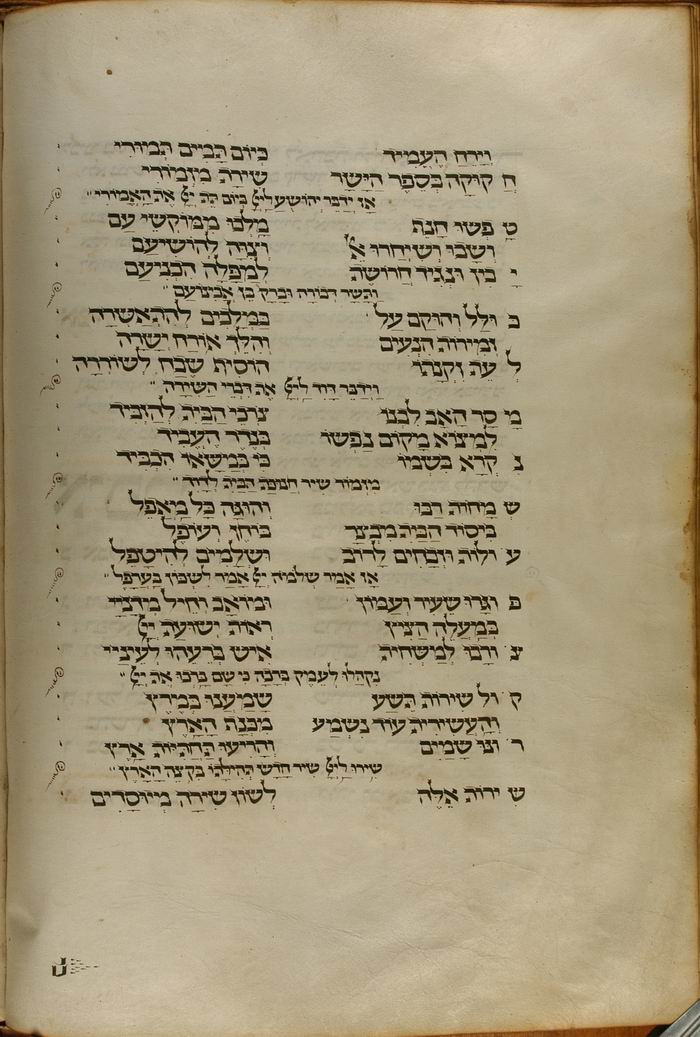 וירח העמיד כיום תמים תמורי
ח קוקה בספר הישר שירת מזמורי
אז ידבר יהושע ליי ביום תת יי את האמורי
ט פשו חנת מלכו ממוקשי עם
ושבו ושיחרו וצוה להושיעם
י כין ונגיד חרושה למפלה הכניעם
ותשר דבורה וברק בן אבינועם
כ ולל והוקם על במלכים להתאשרה
זמירות הנעים והלך אורח ישרה
ל עת זקנתו הוסית שבח לשוררה
וידבר דוד ליי את דברי השירה
מ סר האב לבנו צרכי הבית להזכיר
למצוא מקום נפשו בנדר העביר
נ קרא בשמו כי במשאו הכביד
מזמור שיר חנוכת הבית לדוד
ש מחות רבו והוגה כל מאפל
ביסוד הבית מבצר בוחן ועופל
ע ולות וזבחים לרוב ושלמים להיטפל
אז אמר שלמה יי אמר לשכון בערפל
פ וגרו שעיר ועמון ומואב וחיל מידיי
במעלה הציץ ראות ישועת יי
צ ורפו למשחית איש ברעהו לעיניי
נקהלו לעמק ברכה כי שם ברכו את יי
ק ול שירות תשע שמענו במרץ
והעשירית עוד נשמע מכנף הארץ
ר ונו שמים והריעו תחתיות ארץ
שירו ליי שיר חדש תהילתו מקצה הארץ
ש ירות אלה לשון שירה מיוסדים